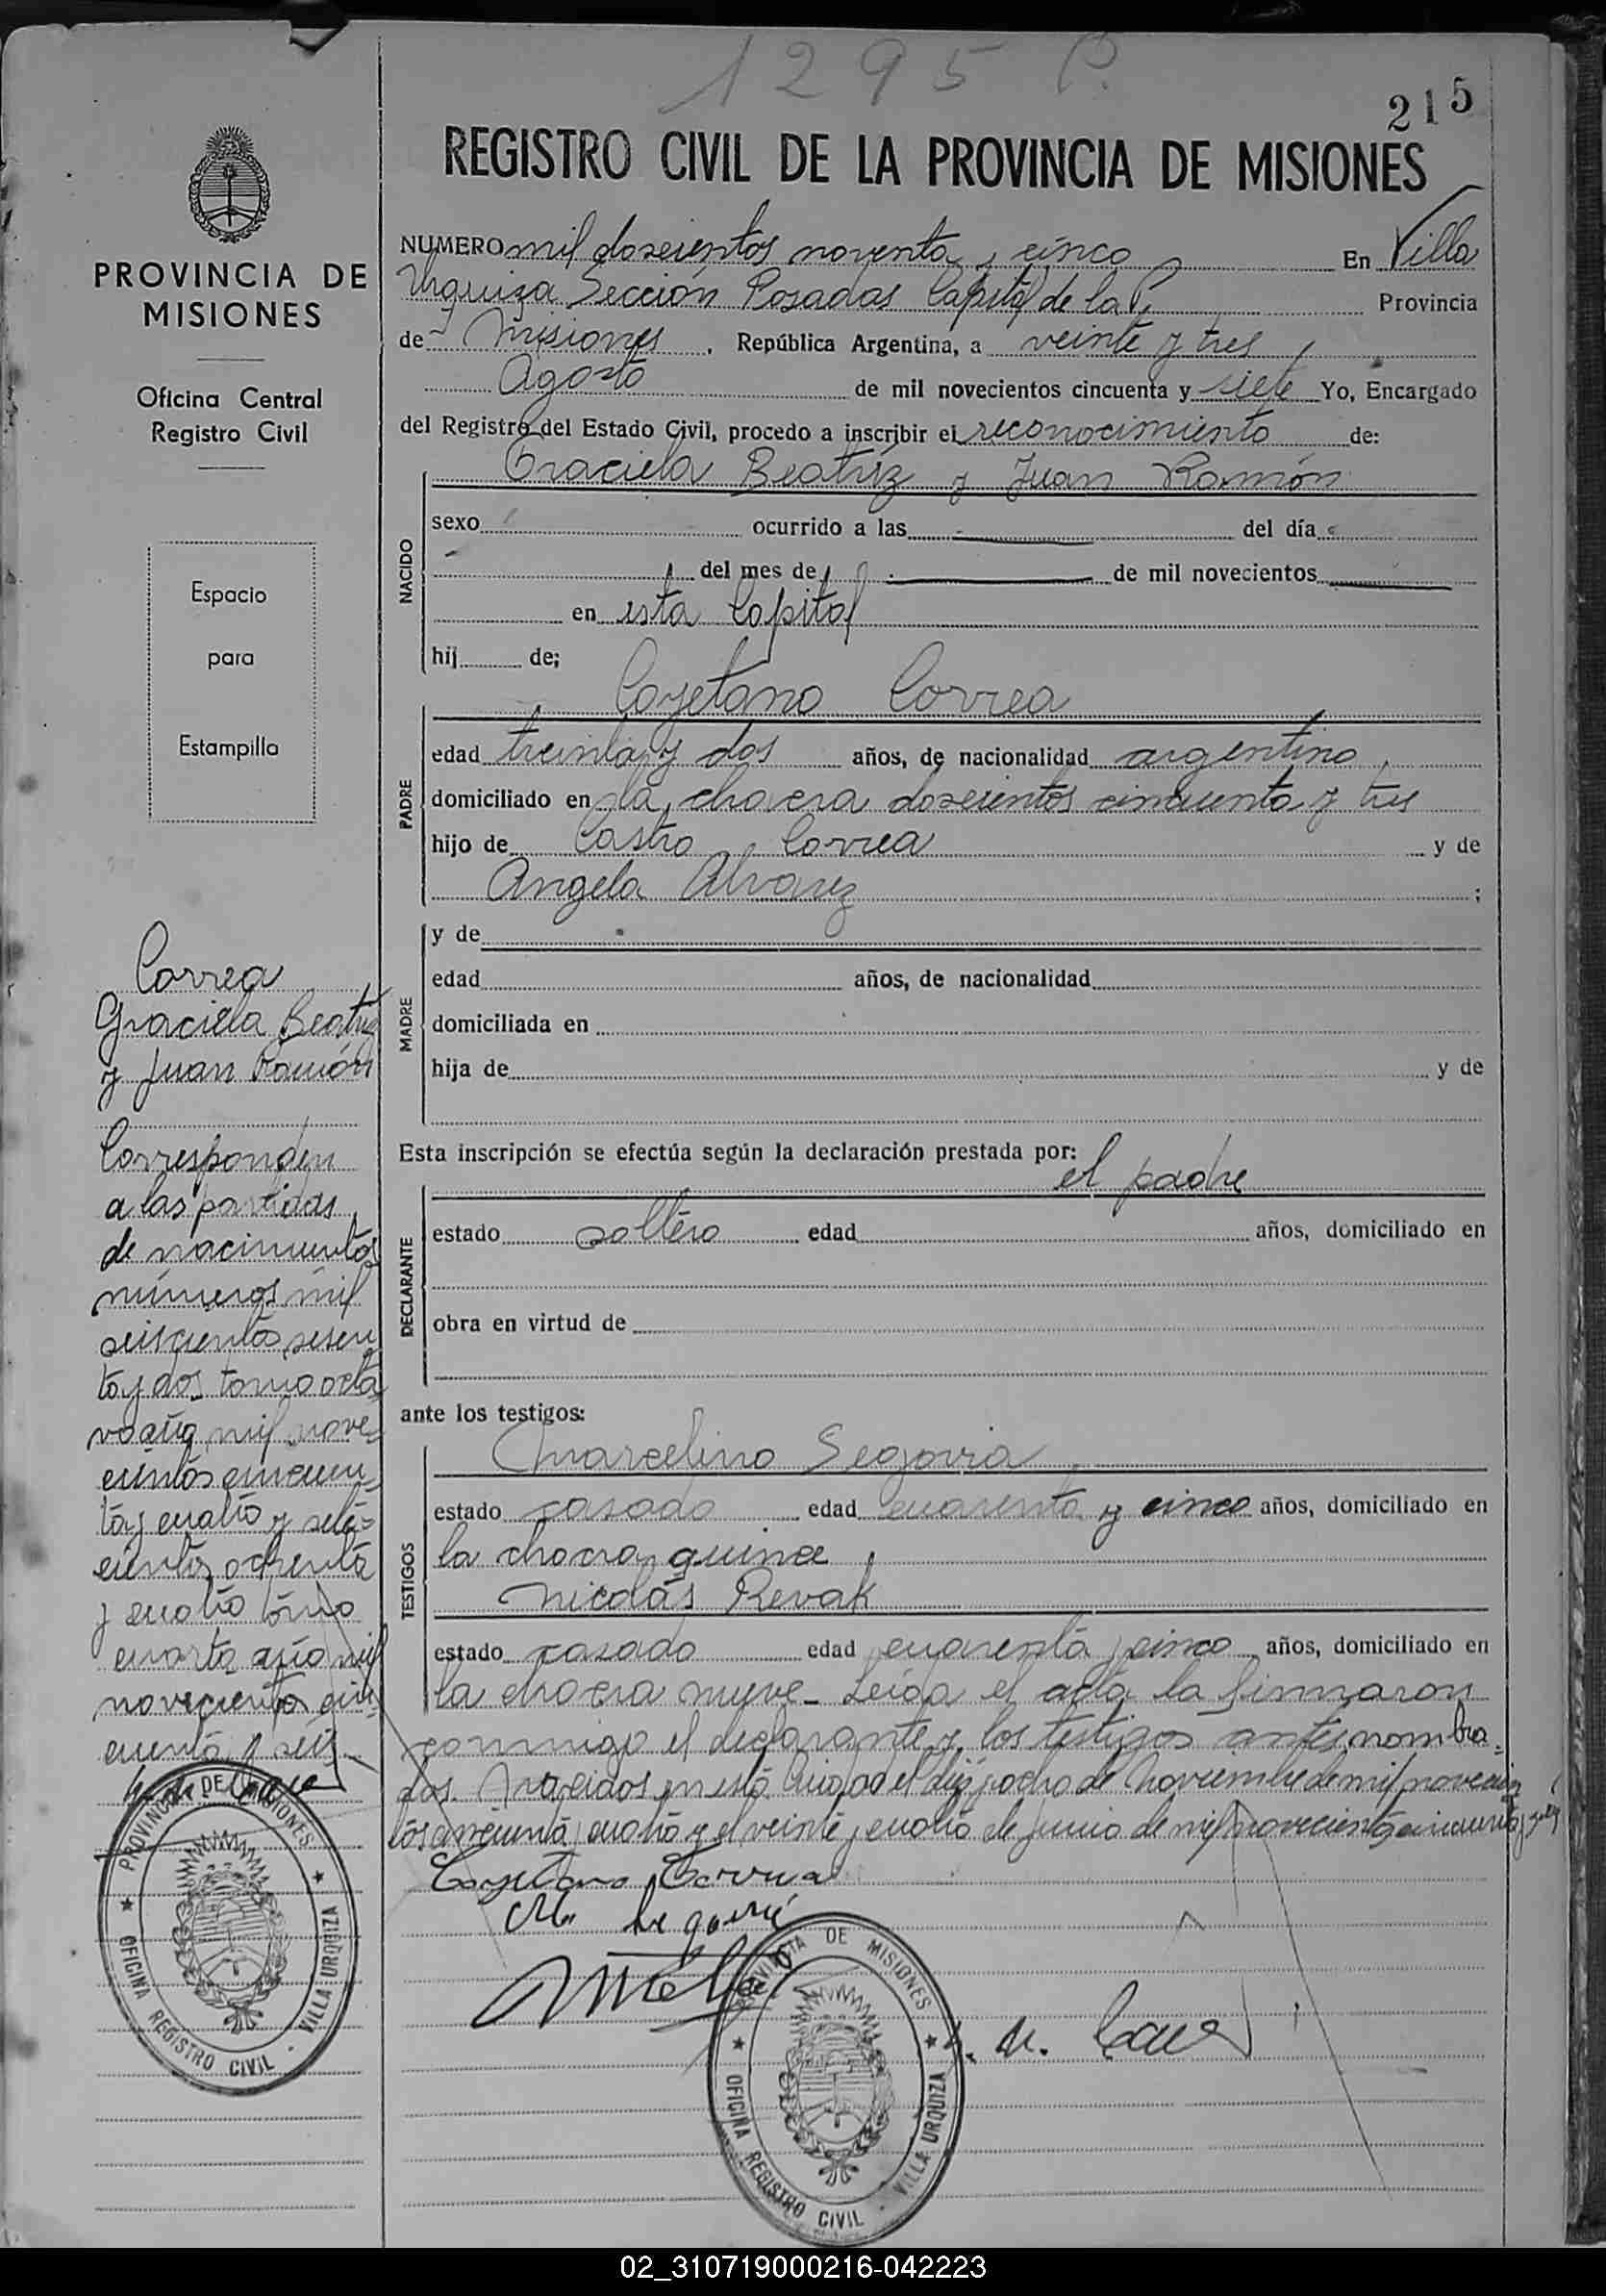 1295 P.
215
REGISTRO CIVIL DE LA PROVINCIA DE MISIONES
PROVINCIA DE
MISIONES
Oficina Central
Registro Civil
Espacio
para
Estampilla
NUMERO mil doscientos noventa y cinco En Villa
Urquiza Sección Posadas Capital de la P. Provincia
de Misiones, República Argentina, a veinte y tres
Agosto de mil novecientos cincuenta y siete Yo, Encargado
del Registro del Estado Civil, procedo a inscribir el reconocimiento de:
Graciela Beatríz y Juan Ramón
NACIDO
sexo ocurrido a las del día
del mes de de mil novecientos
en esta Capital
hij de;
Cayetano Correa
PADRE
edad treinta y dos años, de nacionalidad argentino
domiciliado en la chacra doscientos cincuenta y tres
hijo de Castro Correa y de
Angela Alvarez ;
MADRE
y de
edad años, de nacionalidad
domiciliada en
hija de y de
Esta inscripción se efectúa según la declaración prestada por:
el padre
DECLARANTE
estado soltero edad años, domiciliado en
obra en virtud de
ante los testigos:
Marcelino Segovia
TESTIGOS
estado casado edad cuarenta y cinco años, domiciliado en
la chacra quince
Nicolás Revak
estado casado edad cuarenta y cinco años, domiciliado en
la chacra nueve - Leída el acta la firmaron
conmigo el declarante y los testigos antes nombra-
dos. Nacidos en esta Ciudad el diez y ocho de Noviembre de mil novecien
tos cincuenta y cuatro y el veinte y cuatro de Junio de mil novecientos cincuenta y seis
Cayetano Correa
M. Segovia
Correa
Graciela Beatriz
y Juan Ramón
Corresponden
a las partidas
de nacimientos
números mil
seiscientos sesen
ta y dos tomo octa
vo año mil nove-
cientos cincuen-
ta y cuatro y sete-
cientos ochenta
y cuatro tomo
cuarto año mil
novecientos cin-
cuenta y seis
PROVINCIA DE MISIONES
OFICINA REGISTRO CIVIL · VILLA URQUIZA
PROVINCIA DE MISIONES
OFICINA REGISTRO CIVIL · VILLA URQUIZA
02_310719000216-042223